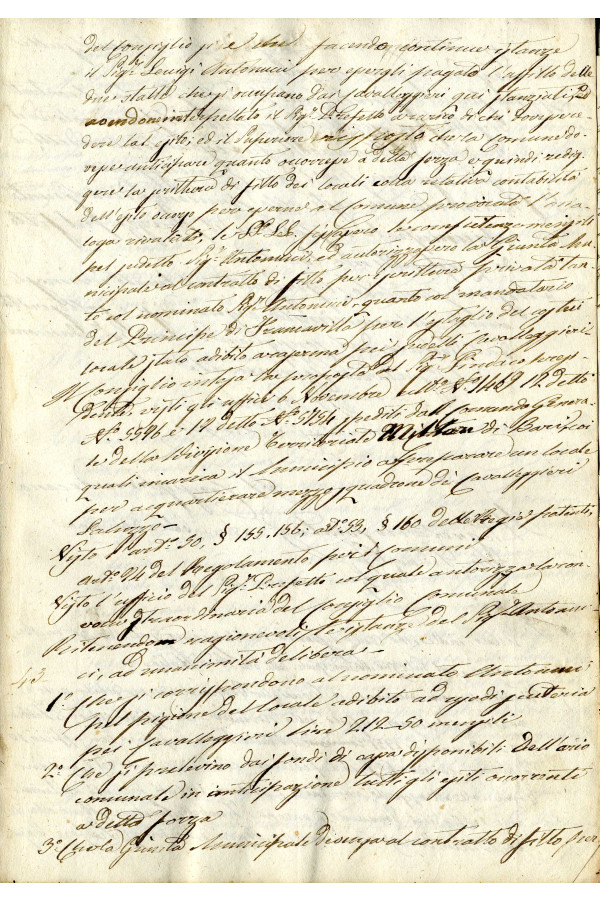 del Consiglio che facendo continue istanze
il Sigr. Luigi Antonucci per essergli pagato l'affitto delle
due stalle che si occupano dai Cavalleggieri qui stanziati, ed
avendone interpellato il Sigr. Prefetto a carico di chi dompre
dere tal esito, ed il Superiore rispposto che la Comune do
vesse anticipare quanto occorresse a detta forza e quindi redig
gere la scrittura di fitto dei locali colla relativa contabilità
dell'esito
loga rivaluta, le SS. LL.
pel sudetto Sigr. Antonucci, ed autorizzassero la Giunta Mu
nicipale al contratto di fitto per iscrittura privata tan
to col nominato Sigr. Antonucci, quanto col mandatario
del Principe di Francavilla per l'estaglio del
locale stato adibito a caserma pei sudetti Cavalleggieri
Il Consiglio intesa la proposta del Sigr. Sindaco Presi
dente, visti gli uffici 6 Novembre N. 12 detto
N. 5596 e 12 detto N. 5734 spediti dal Comando Genera
le della Divisione Territoriale Militare di Bari, coi
quali incarica il Municipio a preparare un locale
per acquartierare mezzo squadrone di Cavalleggieri
Saluzzo
Visto l'art. 50, § 155, 156; art. 53, § 160 delle Regie patenti,
art. 94 del Regolamento per i Comuni
Visto l'ufficio del Sigr. Prefetto col quale autorizza la con
voca straordinaria del Consiglio Comunale
Ritenendo ragionevoli le istanze del Sigr. Antonuc
ci, ad unanimità delibera
1° Che si corrispondono al nominato Antonucci
pel pigione del locale adibito ad uso di scuderia
pei Cavalleggieri lire 212-50 mensili
2° Che si prelevino dai fondi di cassa disponibili dell'ario
comunale in anticipazione tutti gli esiti occorrenti
a detta forza
3° Che la Giunta Municipale divenga al contratto di fitto per